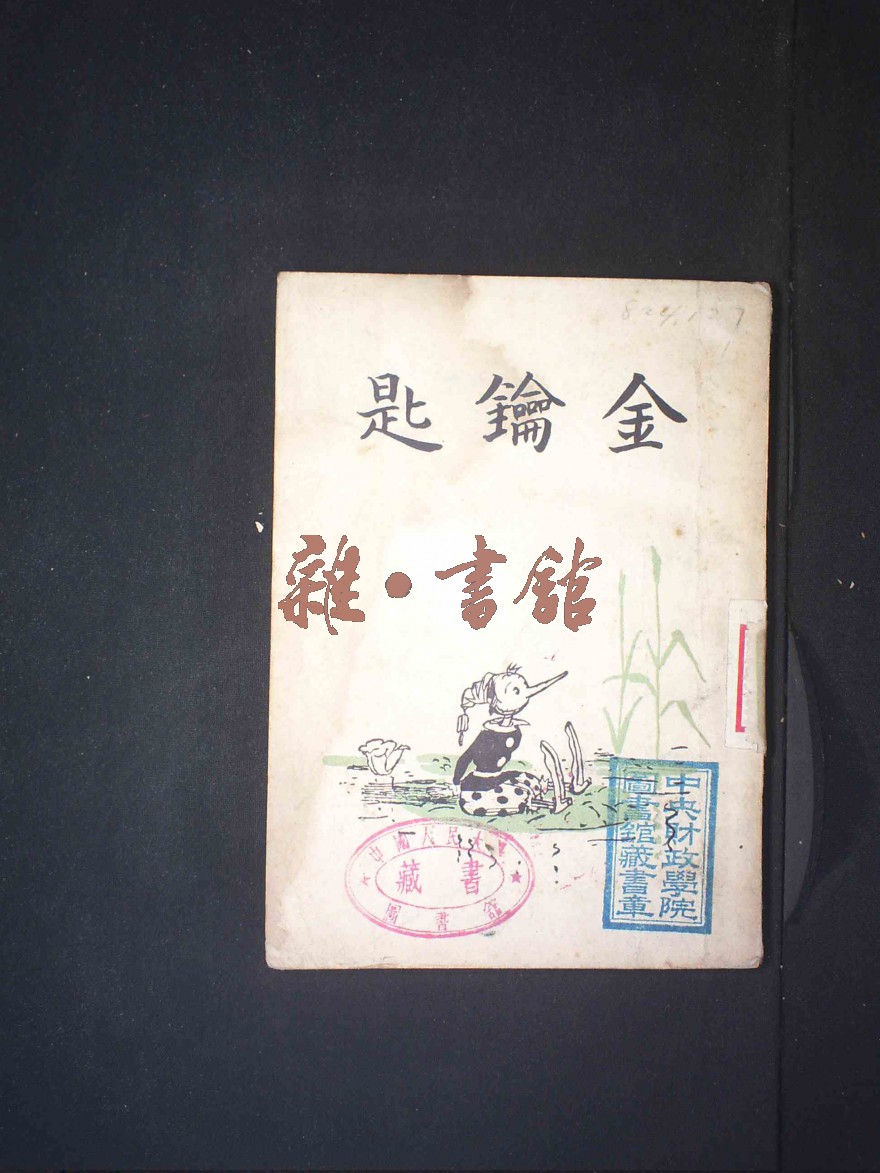 824.127
金鑰匙
雜·書館
中央財政學院
圖書館藏書章
中國人民大學
藏書
圖書館